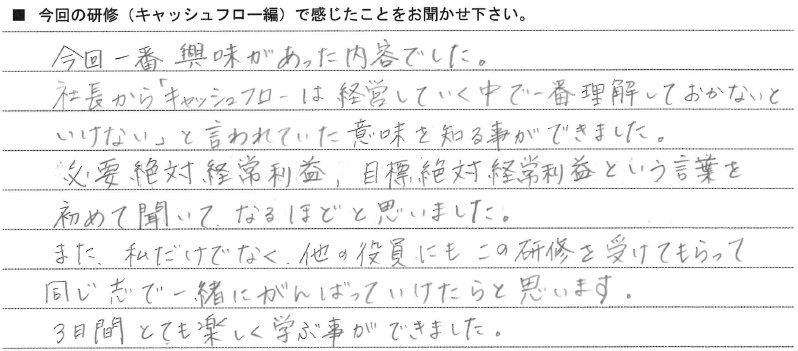 ■ 今回の研修（キャッシュフロー編）で感じたことをお聞かせ下さい。
今回一番興味があった内容でした。
社長から「キャッシュフローは経営していく中で一番理解しておかないと
いけない」と言われていた意味を知る事ができました。
必要絶対経常利益，目標絶対経常利益という言葉を
初めて聞いて、なるほどと思いました。
また、私だけでなく、他の役員にもこの研修を受けてもらって
同じ志で一緒にがんばっていけたらと思います。
3日間とても楽しく学ぶ事ができました。